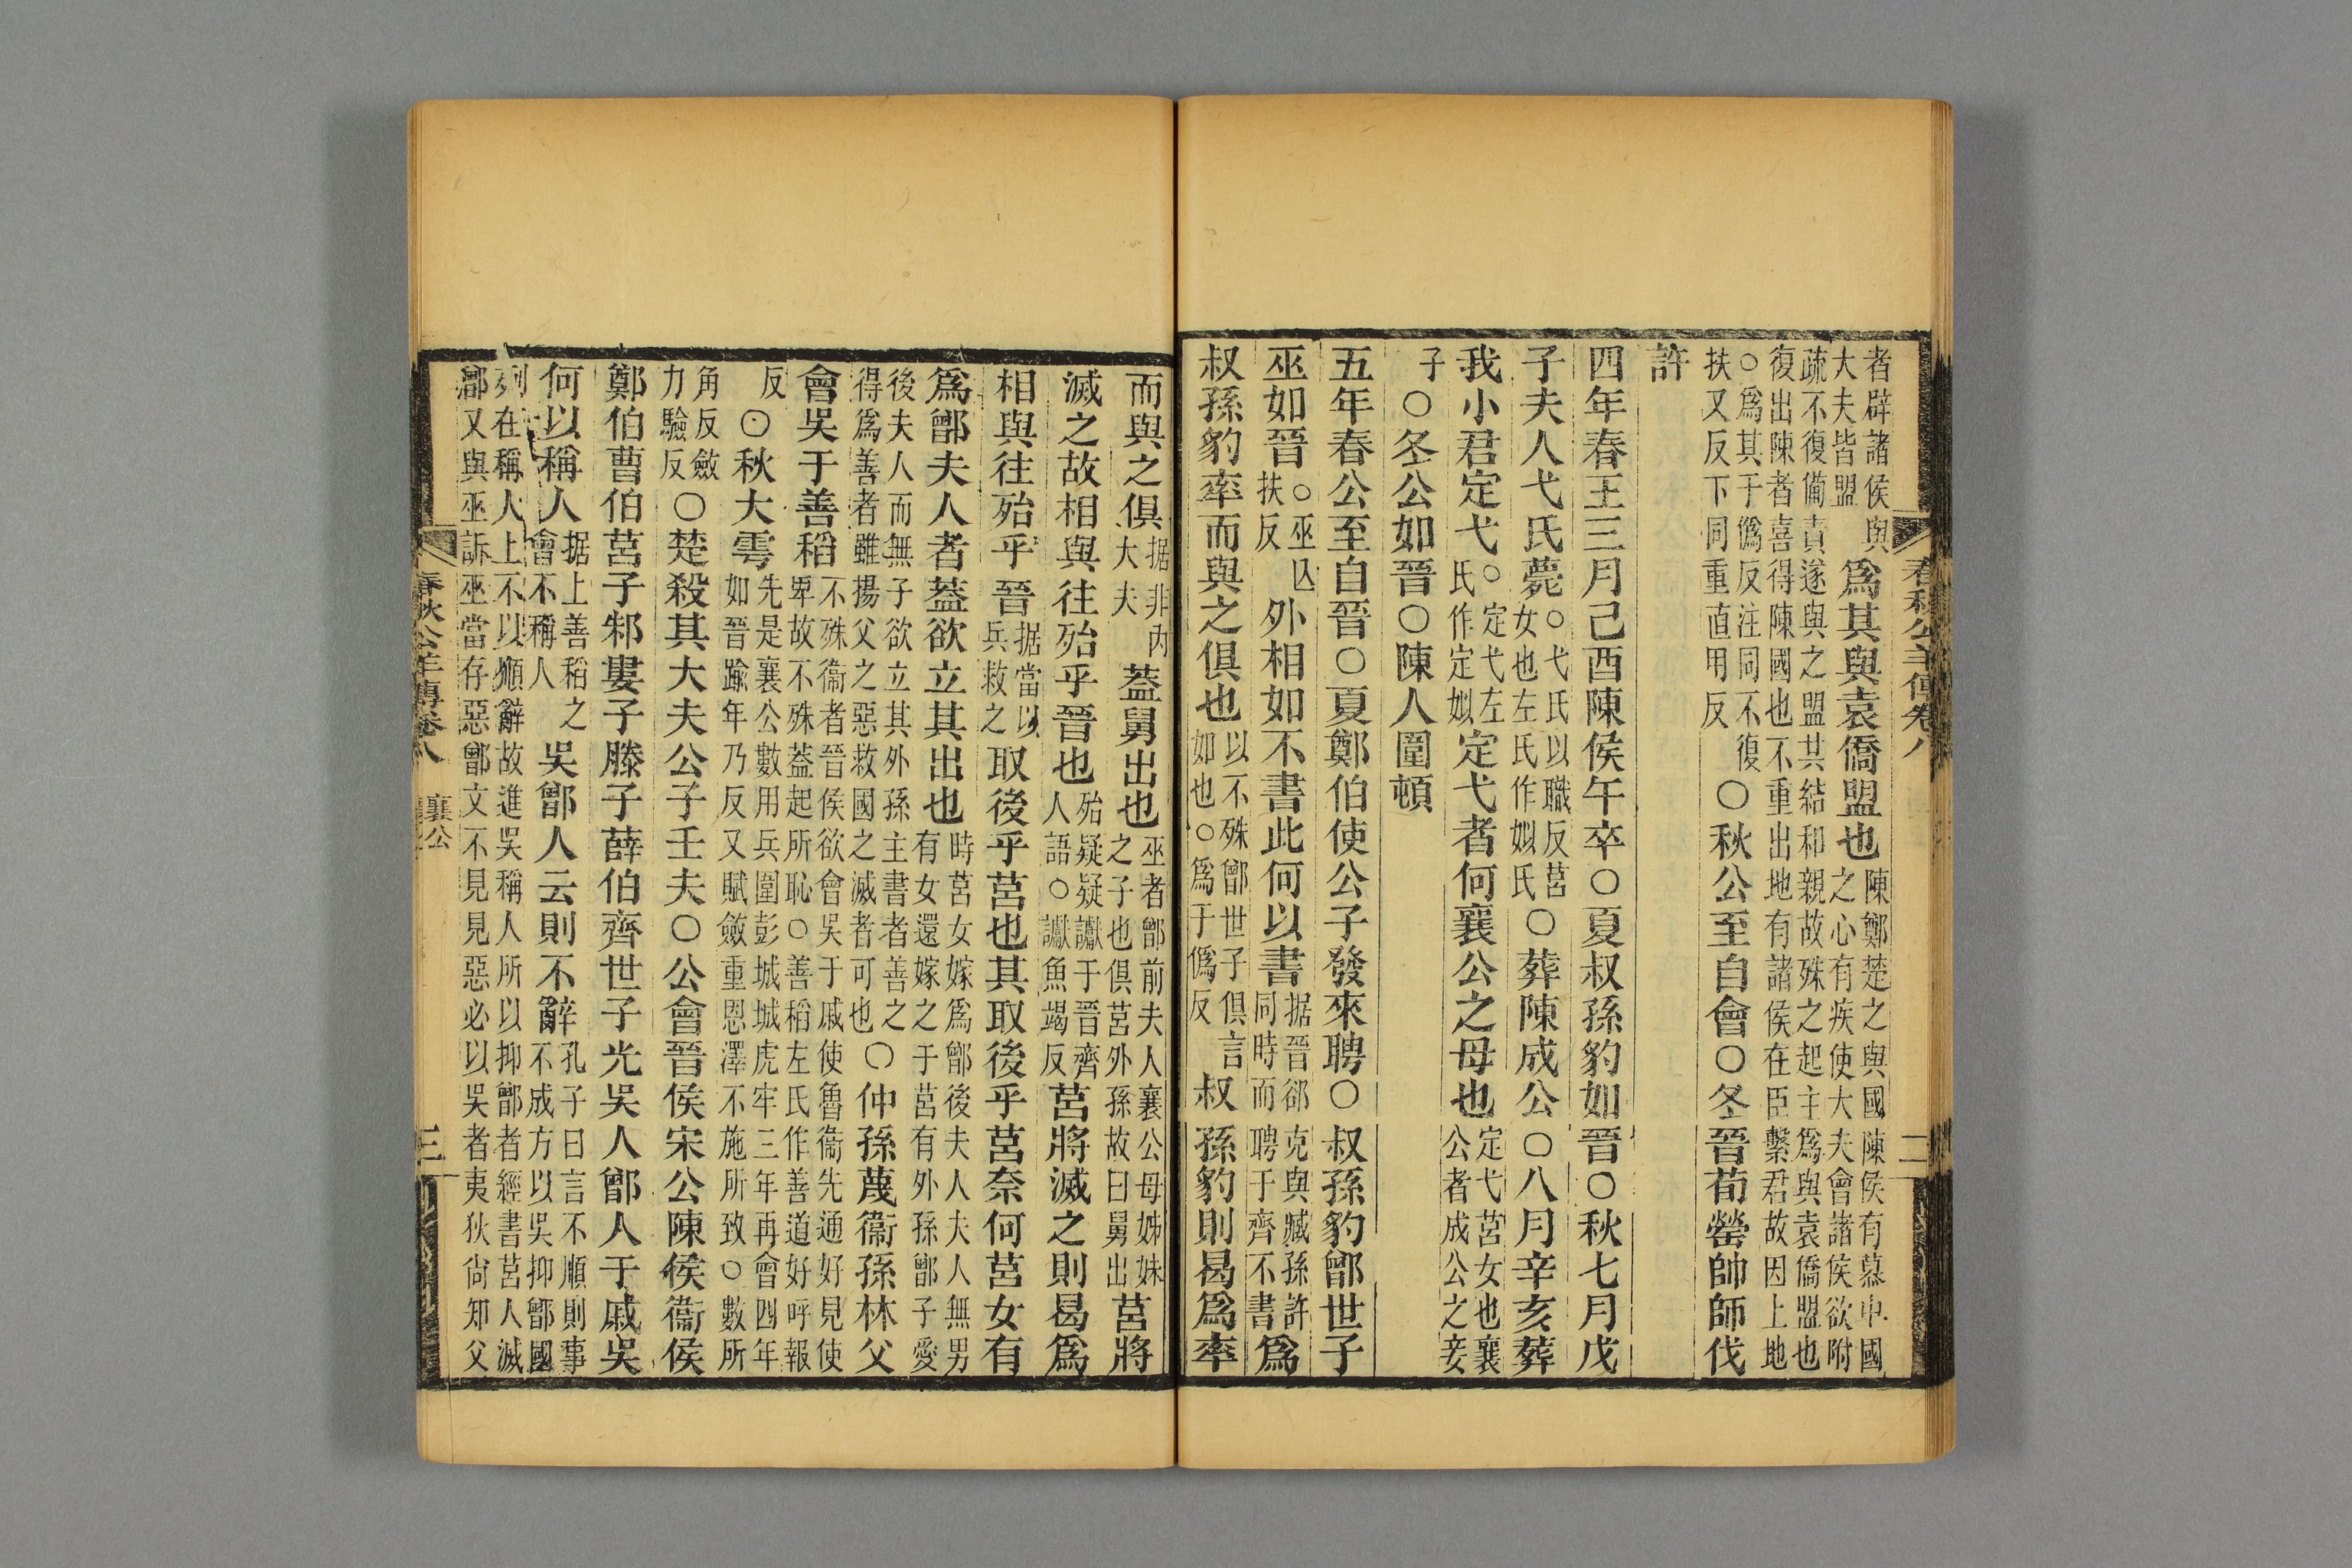 春秋公羊傳卷八 二
者辟諸侯與
大夫皆盟
爲其與袁僑盟也
陳鄭楚之與國陳侯有慕中國
之心有疾使大夫會諸侯欲附
疏不復備責遂與之盟共結和親故殊之起主爲與袁僑盟也
復出陳者喜得陳國也不重出地有諸侯在臣繫君故因上地
○爲其于僞反注同不復
扶又反下同重直用反
○秋公至自會○冬晉荀罃帥師伐
許
四年春王三月己酉陳侯午卒○夏叔孫豹如晉○秋七月戊
子夫人弋氏薨
○弋氏以職反莒
女也左氏作姒氏
○葬陳成公○八月辛亥葬
我小君定弋
○定弋左
氏作定姒
定弋者何襄公之母也
定弋莒女也襄
公者成公之妾
子
○冬公如晉○陳人圍頓
五年春公至自晉○夏鄭伯使公子發來聘○叔孫豹鄫世子
巫如晉
○巫亾
扶反
外相如不書此何以書
据晉郤克與臧孫許
同時而聘于齊不書
爲
叔孫豹率而與之俱也
以不殊鄫世子俱言
如也○爲于僞反
叔孫豹則曷爲率
而與之俱
据非内
大夫
蓋舅出也
巫者鄫前夫人襄公母姊妹
之子也俱莒外孫故曰舅出
莒將
滅之故相與往殆乎晉也
殆疑疑讞于晉齊
人語○讞魚竭反
莒將滅之則曷爲
相與往殆乎晉
据當以
兵救之
取後乎莒也其取後乎莒奈何莒女有
爲鄫夫人者蓋欲立其出也
時莒女嫁爲鄫後夫人夫人無男
有女還嫁之于莒有外孫鄫子愛
後夫人而無子欲立其外孫主書者善之
得爲善者雖揚父之惡救國之滅者可也
○仲孫蔑衞孫林父
會吳于善稻
不殊衞者晉侯欲會吳于戚使魯衞先通好見使
卑故不殊蓋起所恥○善稻左氏作善道好呼報
反
○秋大雩
先是襄公數用兵圍彭城城虎牢三年再會四年
如晉踰年乃反又賦斂重恩澤不施所致○數所
角反斂
力驗反
○楚殺其大夫公子壬夫○公會晉侯宋公陳侯衞侯
鄭伯曹伯莒子邾婁子滕子薛伯齊世子光吳人鄫人于戚吳
何以稱人
据上善稻之
會不稱人
吳鄫人云則不辭
孔子曰言不順則事
不成方以吳抑鄫國
列在稱人上不以順辭故進吳稱人所以抑鄫者經書莒人滅
鄫又與巫訴巫當存惡鄫文不見見惡必以吳者夷狄尚知父
春秋公羊傳卷八 襄公 三